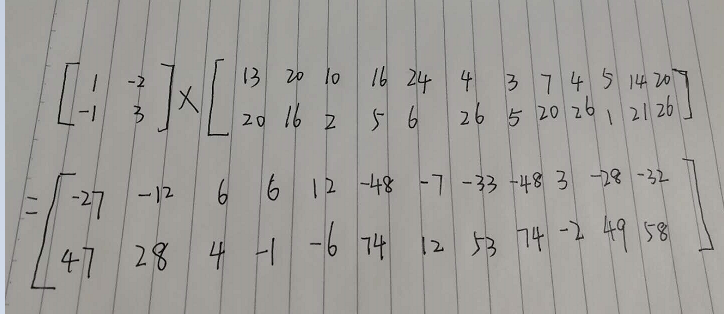 1 -2 13 20 10 16 24 4 3 7 4 5 14 20
-1 3 × 20 16 2 5 6 26 5 20 26 1 21 26
= -27 -12 6 6 12 -48 -7 -33 -48 3 -28 -32
47 28 4 -1 -6 74 12 53 74 -2 49 58